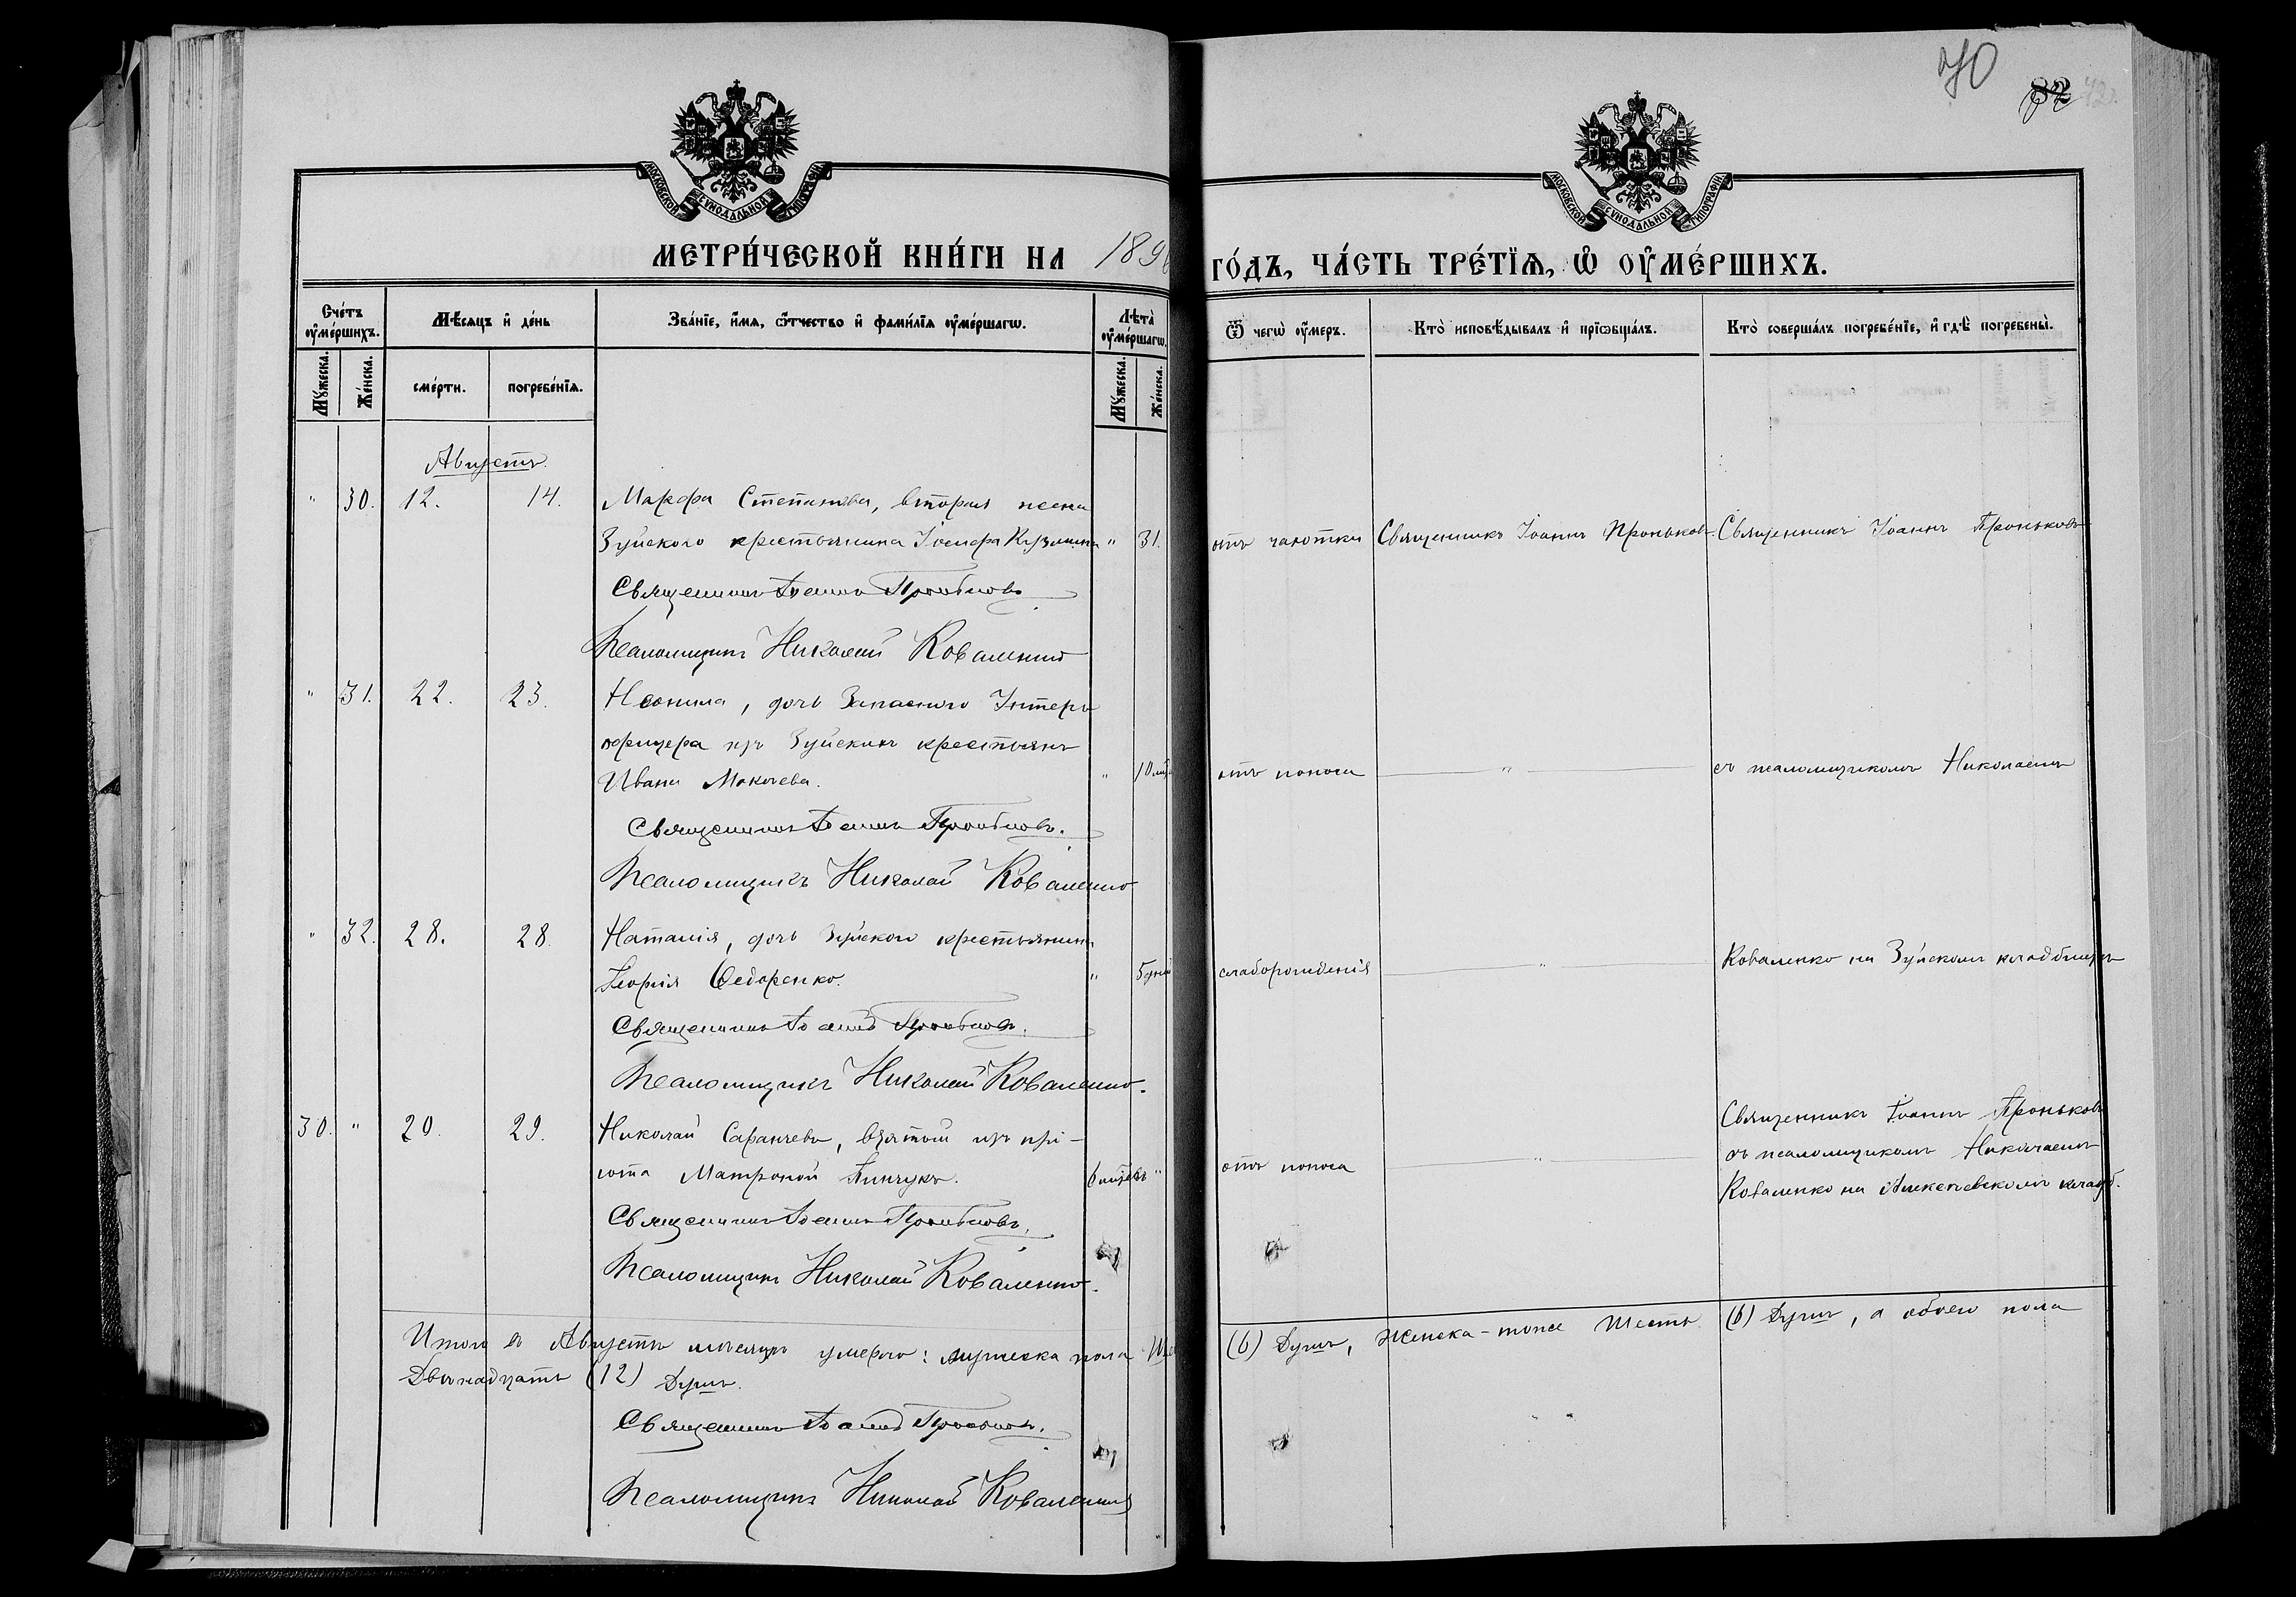 70
82 42.
МОСКОВСКОЙ СѴНОДАЛЬНОЙ ТИПОГРАФІИ
МОСКОВСКОЙ СѴНОДАЛЬНОЙ ТИПОГРАФІИ
МЕТРИ́ЧЕСКОЙ КНИ́ГИ НА 1896
ГО́ДЪ, ЧА́СТЬ ТРЕ́ТІѦ, Ѽ ОУ҆МЕ́РШИХЪ.
Сче́тъ оу҆ме́ршихъ.
Мѣ́сяцъ и҆ де́нь
Зва́нїе, и҆́мя, ѻ҆́тчество и҆ фами́лїя оу҆ме́ршагѡ.
Лѣта̀ оу҆ме́ршагѡ.
Ѿ чегѡ̀ оу҆́меръ.
Кто̀ исповѣ́дывалъ и҆ прїѡбща́лъ.
Кто̀ соверша́лъ погребе́нїе, и҆ гдѣ̀ погребены̀.
Мꙋ́жеска.
Же́нска.
сме́рти.
погребе́нїя.
Мꙋ́жеска.
Же́нска.
Августъ.
" 30. 12. 14. Марфа Степанова, вторая жена
Зуйского крестьянина Іосифа Кузмина " 31. отъ чахотки Священникъ Іоаннъ Проньковъ. Священникъ Іоаннъ Проньковъ
Священникъ Іоаннъ Проньковъ
Псаломщикъ Николай Коваленко
" 31. 22. 23. Неонила, дочь Запасного Унтеръ
офицера изъ Зуйскихъ крестьянъ
Ивана Мокачева. " 10 отъ поноса " съ псаломщикомъ Николаемъ
Священникъ Іоаннъ Проньковъ.
Псаломщикъ Николай Коваленко
" 32. 28. 28. Наталія, дочь Зуйского крестьянина
Георгія Ѳедоренко. " 5 дней слаборожденія " Коваленко на Зуйскомъ кладбищѣ
Священникъ Іоаннъ Проньковъ.
Псаломщикъ Николай Коваленко.
30. " 20. 29. Николай Саранчевъ, взятый изъ прі-
юта Матроной Пинчукъ. 6 мѣсяцевъ " отъ поноса " Священникъ Іоаннъ Проньковъ
съ псаломщикомъ Николаемъ
Коваленко на кладб.
Священникъ Іоаннъ Проньковъ.
Псаломщикъ Николай Коваленко.
Итого въ Августѣ мѣсяцѣ умерло: мужеска пола (6) Душъ, женска-тоже Шесть (6) Душъ, а обоего пола
Двѣнадцать (12) Душъ.
Священникъ Іоаннъ Проньковъ.
Псаломщикъ Николай Коваленко